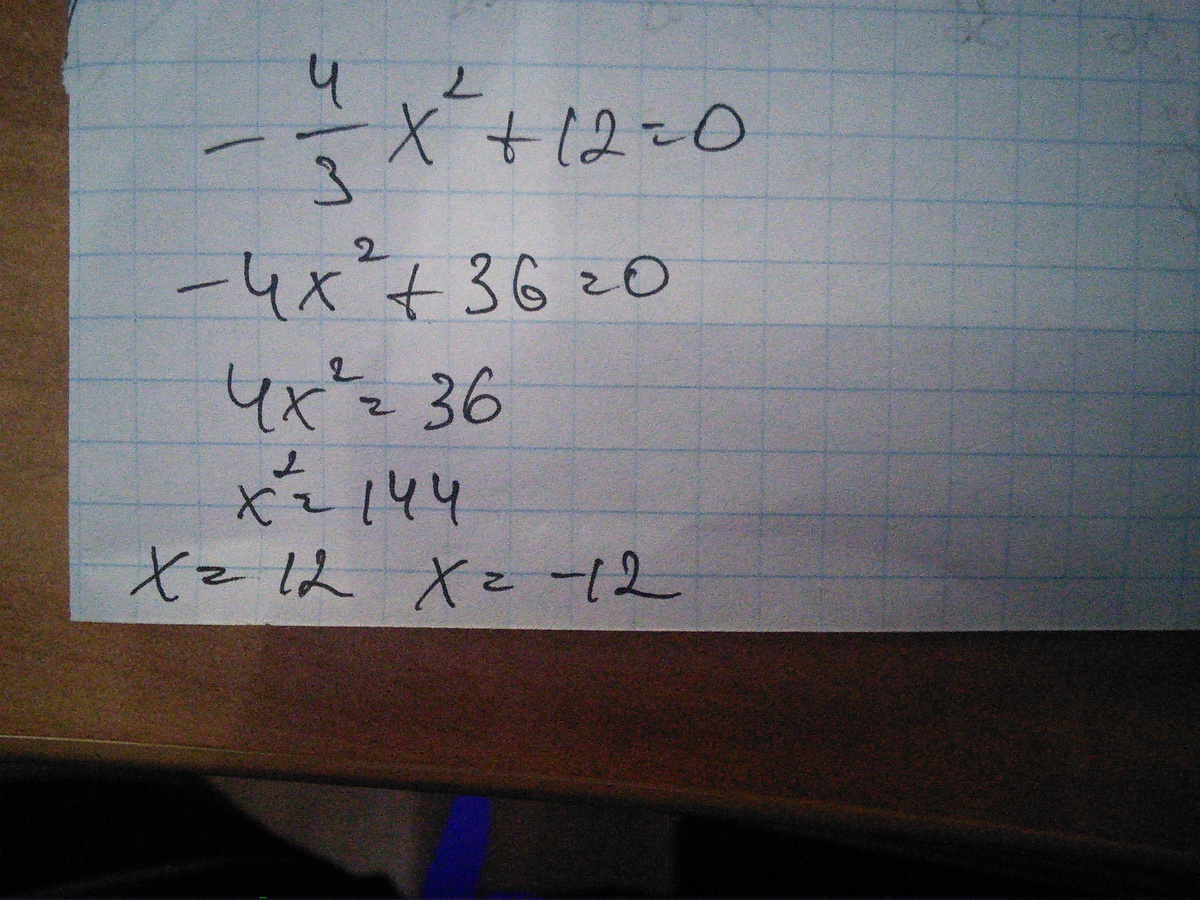 -4/3 x² + 12 = 0
-4x² + 36 = 0
4x² = 36
x² = 144
x = 12 x = -12